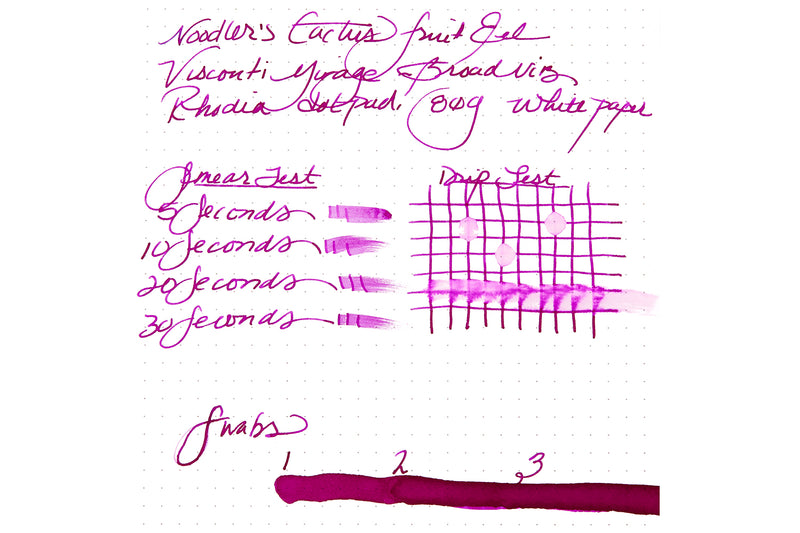 Noodler's Cactus fruit Eel
Visconti Mirage Broad nib
Rhodia dot pad. 80g White paper
Smear Test
5 Seconds
10 Seconds
20 Seconds
30 Seconds
Drip Test
Swabs
1 2 3